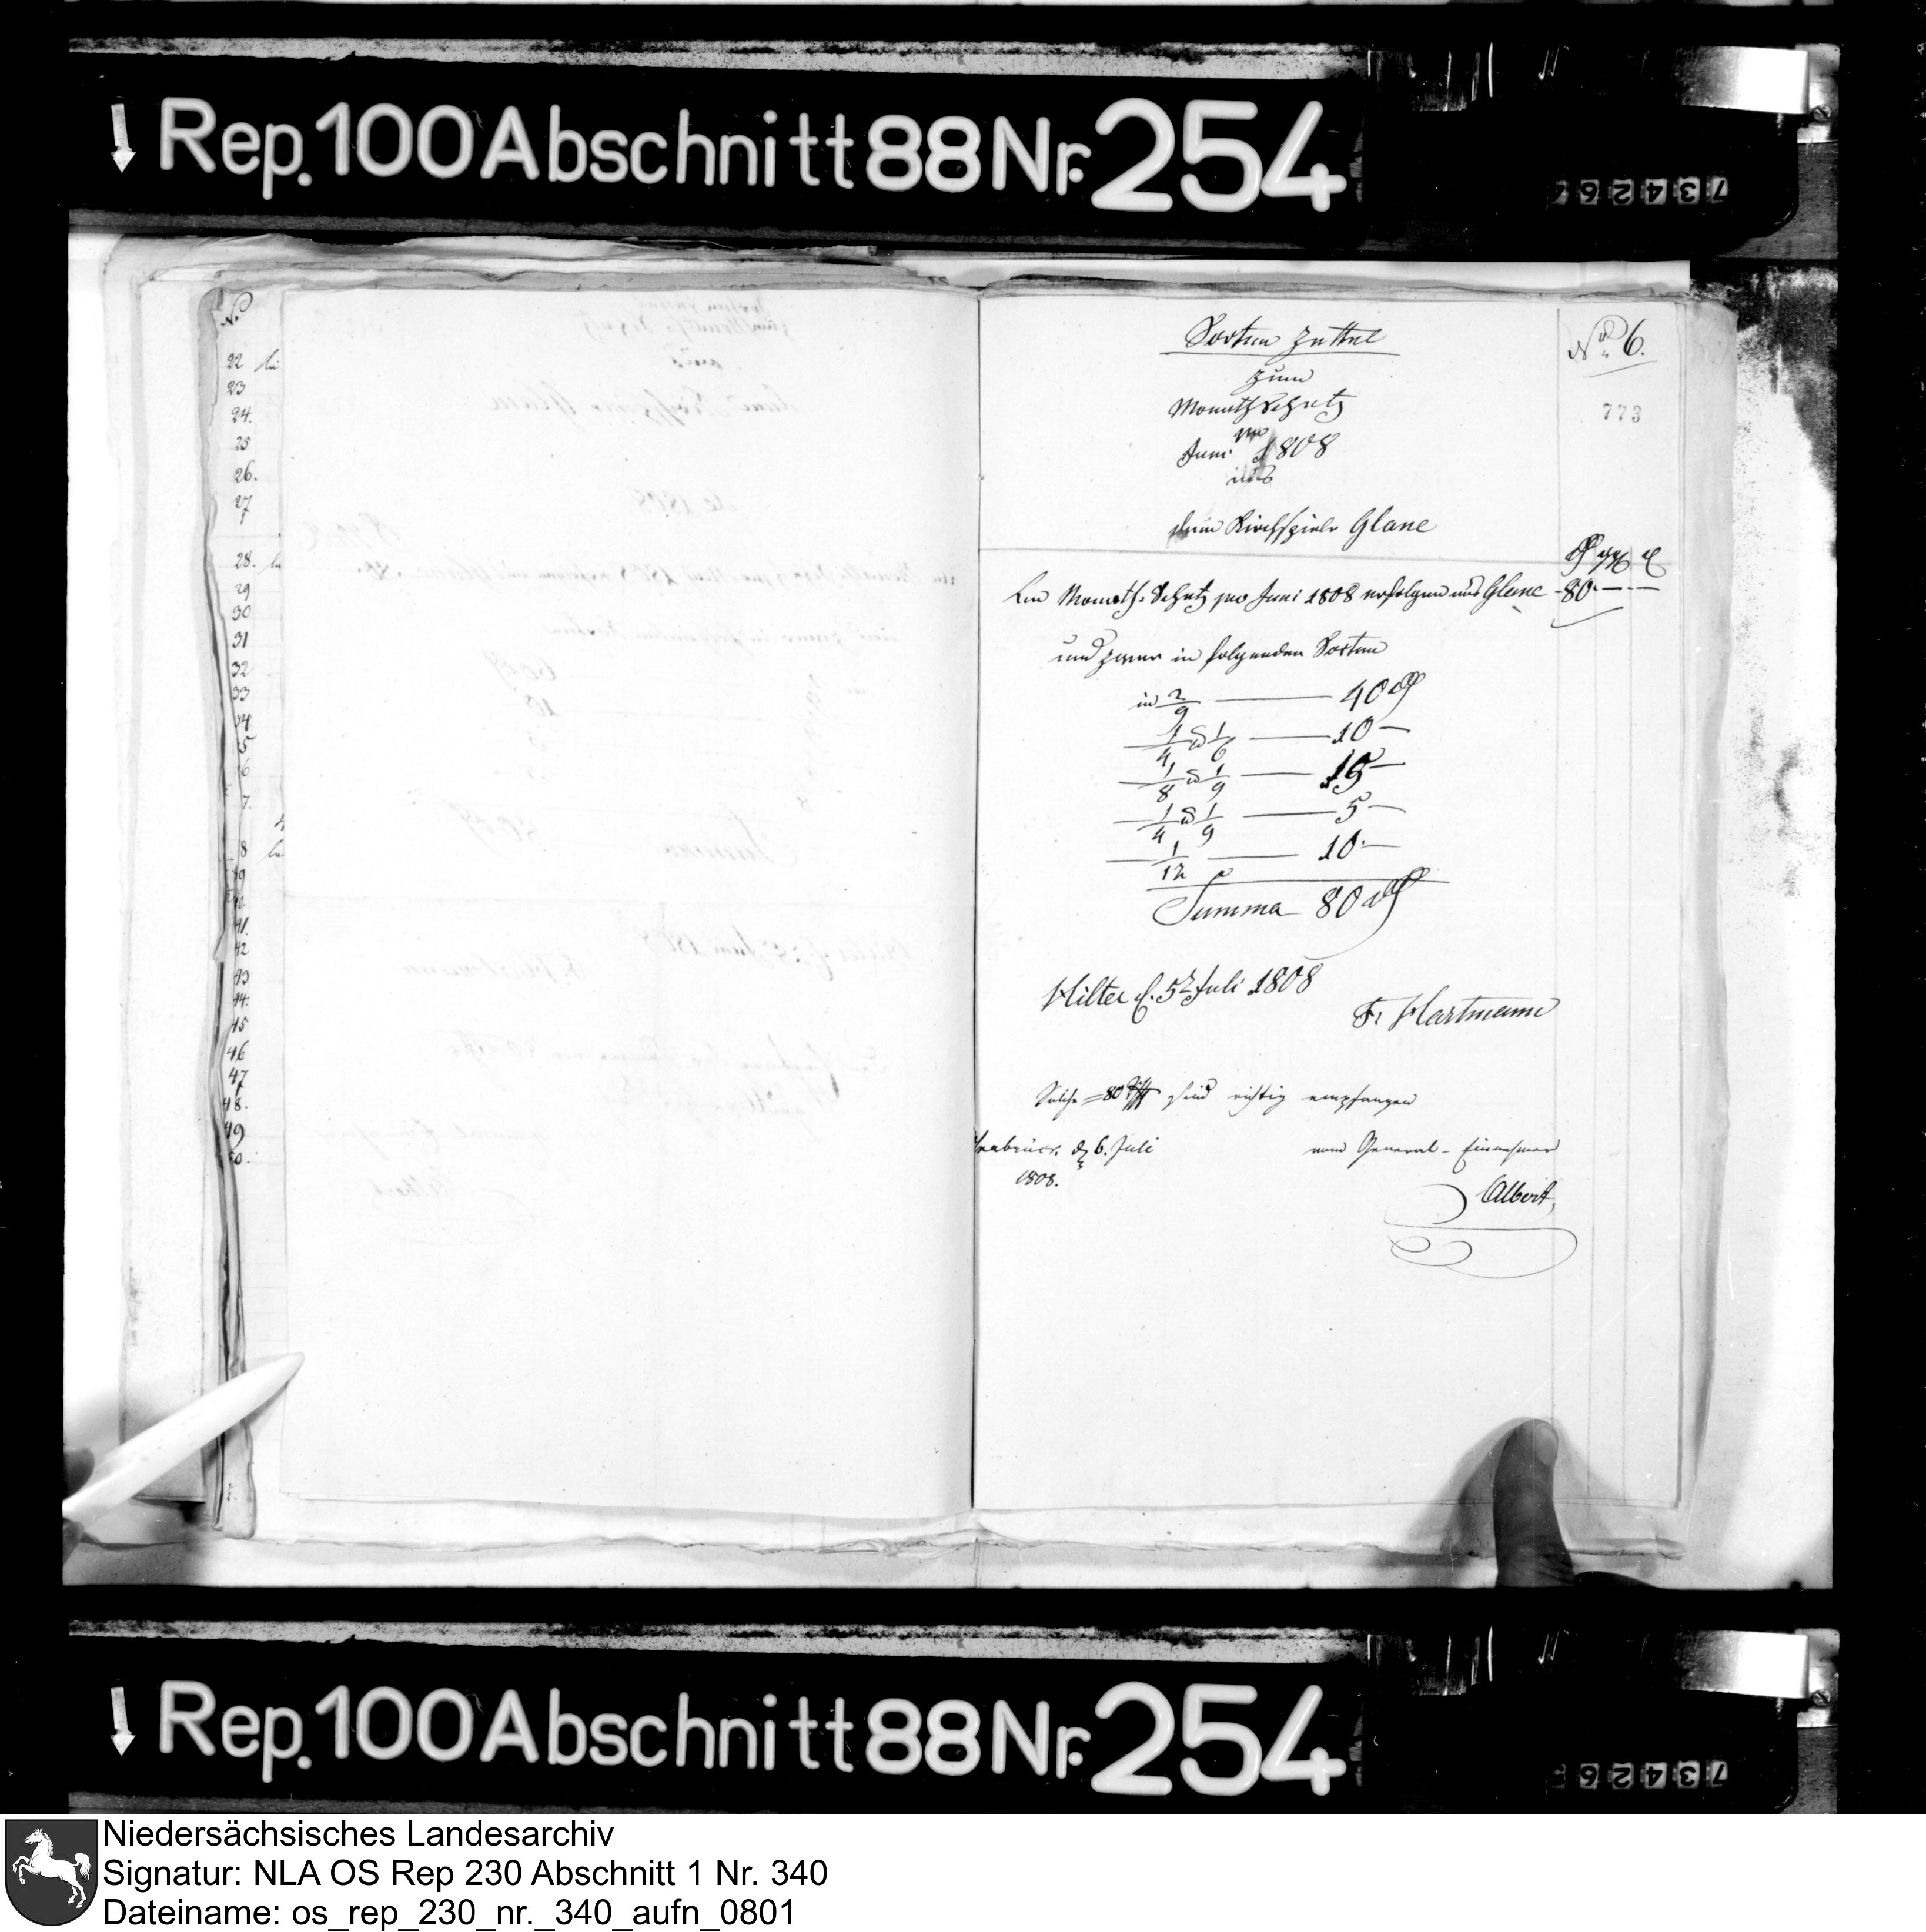 Rep. 100 Abschnitt 88 Nr. 254
734262
N.
22
23
24.
25
26.
27
28.
29
30
31
32
33
34
5
6
7.
8
39
40
41.
42
43
44.
45
46
47
48.
49
50.
Sorten Zettel
zum
Monathschatz
pro
Juni 1808
aus
dem Kirchspiele Glane
No. 6.
773
An Monath-Schatz pro Juni 1808 erfolgen aus Glane 80. — —
und zwar in folgenden Sorten
in 2/9 — 40 rℓ
— 1/4 à 1/6 — 10 —
— 1/8 à 1/9 — 15 —
— 1/4 à 1/9 — 5 —
— 1/12 — 10. —
Summa 80 rℓ
Hilter d. 5t Juli 1808
Fr Hartmann
Solche = 80 rℓ sind richtig empfangen
Osnabrück. d. 6. Juli
1808.
vom General-Einnehmer
Albert
Rep. 100 Abschnitt 88 Nr. 254
734262
Niedersächsisches Landesarchiv
Signatur: NLA OS Rep 230 Abschnitt 1 Nr. 340
Dateiname: os_rep_230_nr._340_aufn_0801